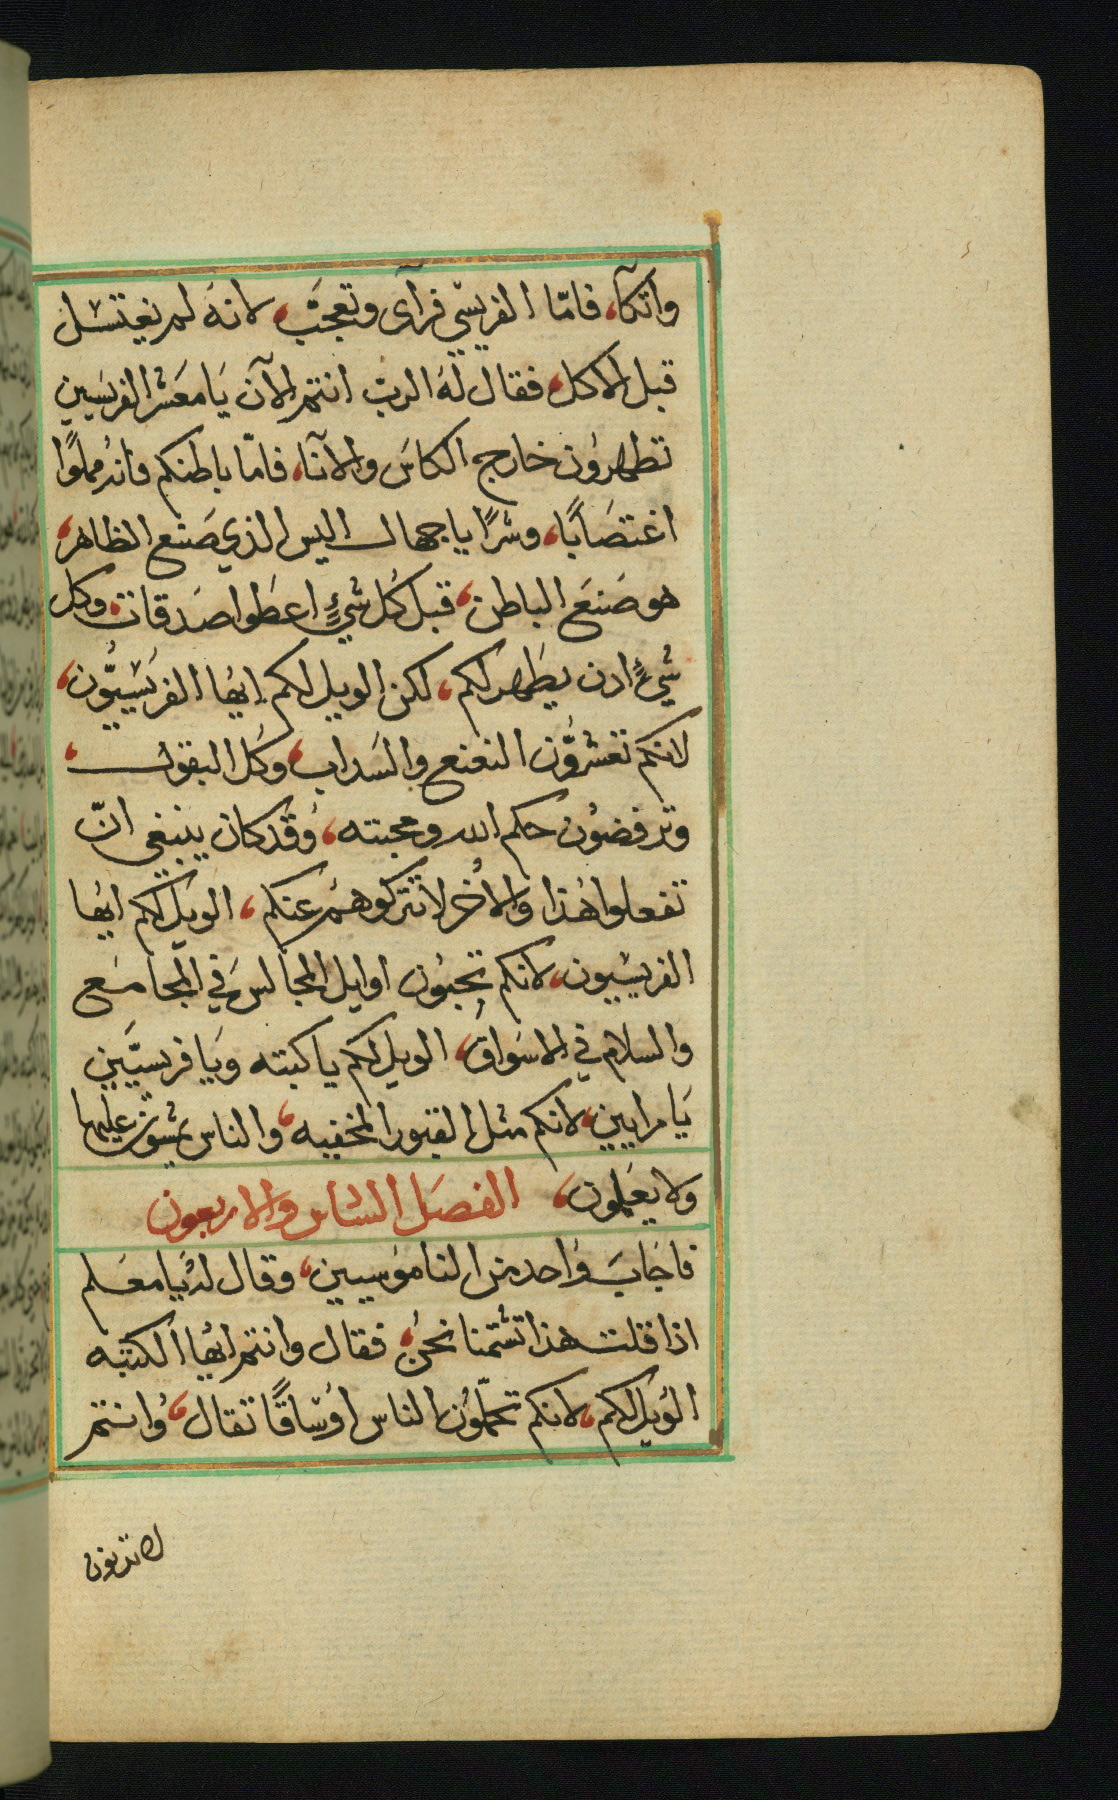 واتكآ، فامّا الفريسّي فرآى وتعجّب، لانه لم يغتسل
قبل الاكل، فقال له الرب انتم الآن يا معشر الفريسيين
تطهرون خارج الكاس والآنا، فامّا باطنكم فانه مملوًا
اغتصابًا، وشرًا يا جهال اليس الذي صنع الظاهر،
هو صنع الباطن، قبل كل شيءٍ اعطوا صدقات، وكل
شيءٍ ادن يطهر لكم، لكن الويل لكم ايها الفريسيّون،
لانكم تعشرون النعنع والسداب، وكل البقول،
وترفضون حكم الله ومحبته، وقد كان ينبغي انّ
تفعلوا هذا والاُخر لا تتركوهم عنكم، الويل لكم ايها
الفريسيون، لانكم تحبون اوايل المجالس في المجامع
والسلام في الاسواق، الويل لكم يا كتبه ويا فريسيّين
يا مرايين، لانكم مثل القبور المخفيه، والناس يمشون عليها
ولا يعلمون، الفصل السادس والاربعون
فاجاب واحد من الناموسيين، وقال له يا معلم
اذا قلت هذا تشتمنا نحن، فقال وانتم ايها الكتبه
الويل لكم، لانكم تحمّلون الناس اوساقًا تقال، وانتم
لا تدنون